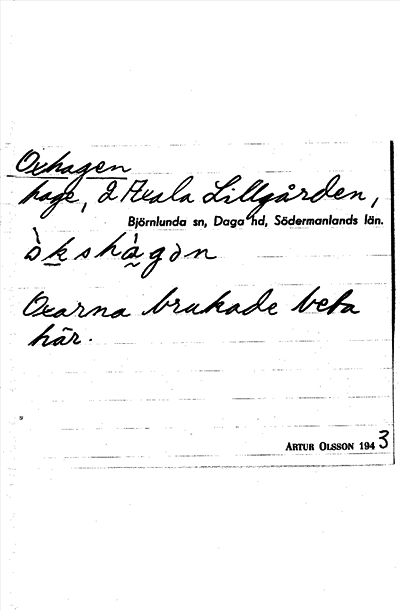 Oxhagen
hage, 2 Axala Lillgården,
Björnlunda sn, Daga hd, Södermanlands län.
ò̀kshà̀gən
Oxarna brukade beta
här.
ARTUR OLSSON 1943